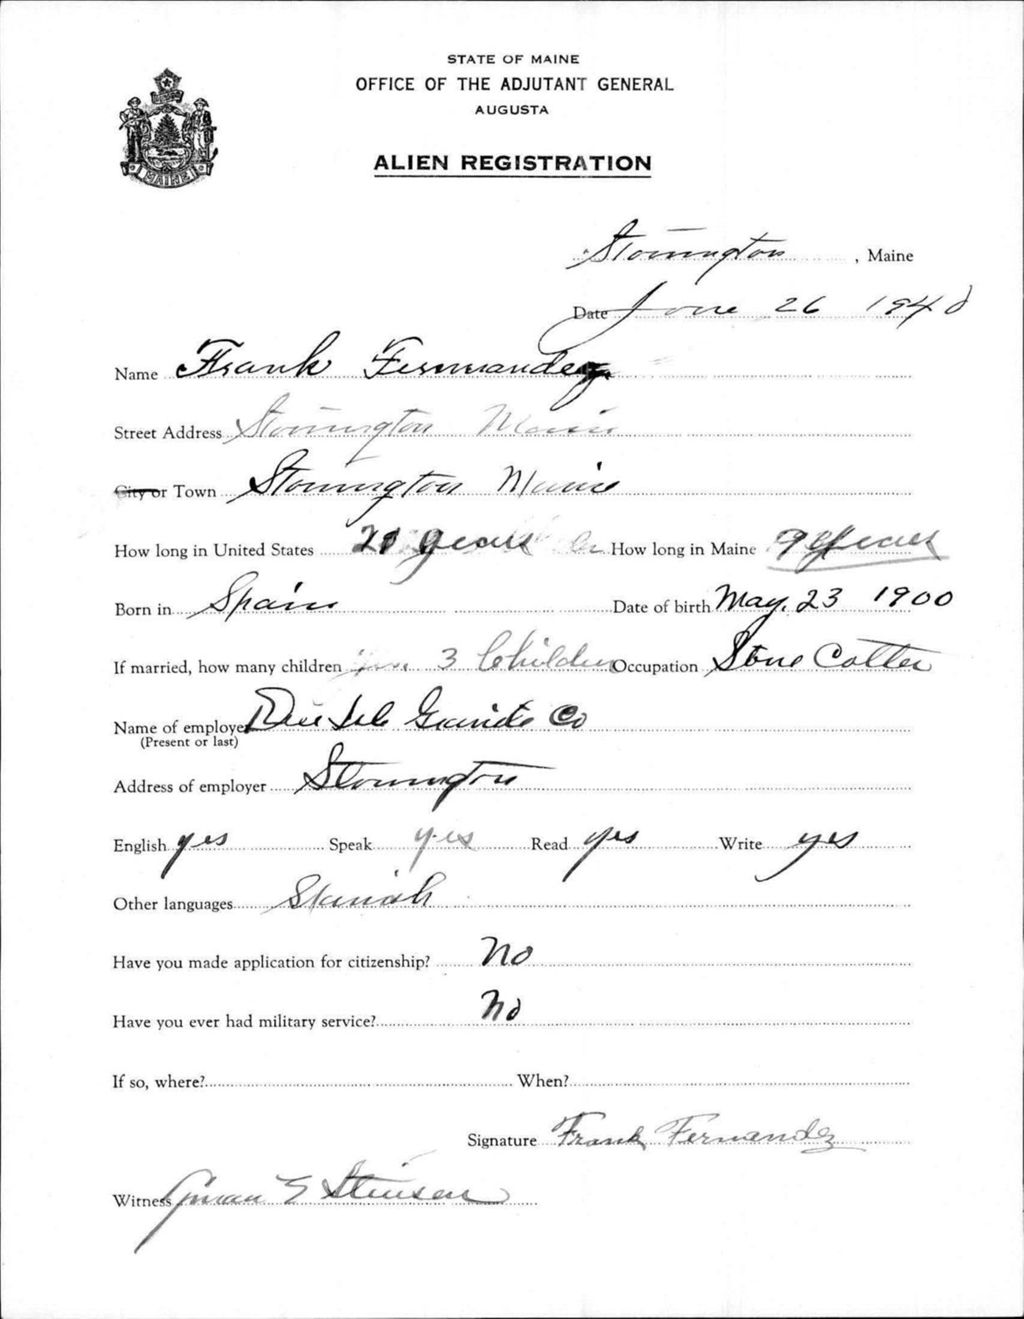 STATE OF MAINE
OFFICE OF THE ADJUTANT GENERAL
AUGUSTA
ALIEN REGISTRATION
MAINE
Stonington, Maine
Date June 26 1940
Name Frank Fernandez
Street Address Stonington Maine
City or Town Stonington Maine
How long in United States 21 years How long in Maine 9 years
Born in Spain Date of birth May. 23 1900
If married, how many children 3 Children Occupation Stone Cotter
Name of employer Deer Isle Granite Co
(Present or last)
Address of employer Stonington
English yes Speak yes Read yes Write yes
Other languages Spanish
Have you made application for citizenship? No
Have you ever had military service? No
If so, where? When?
Signature Frank Fernandez
Witness E